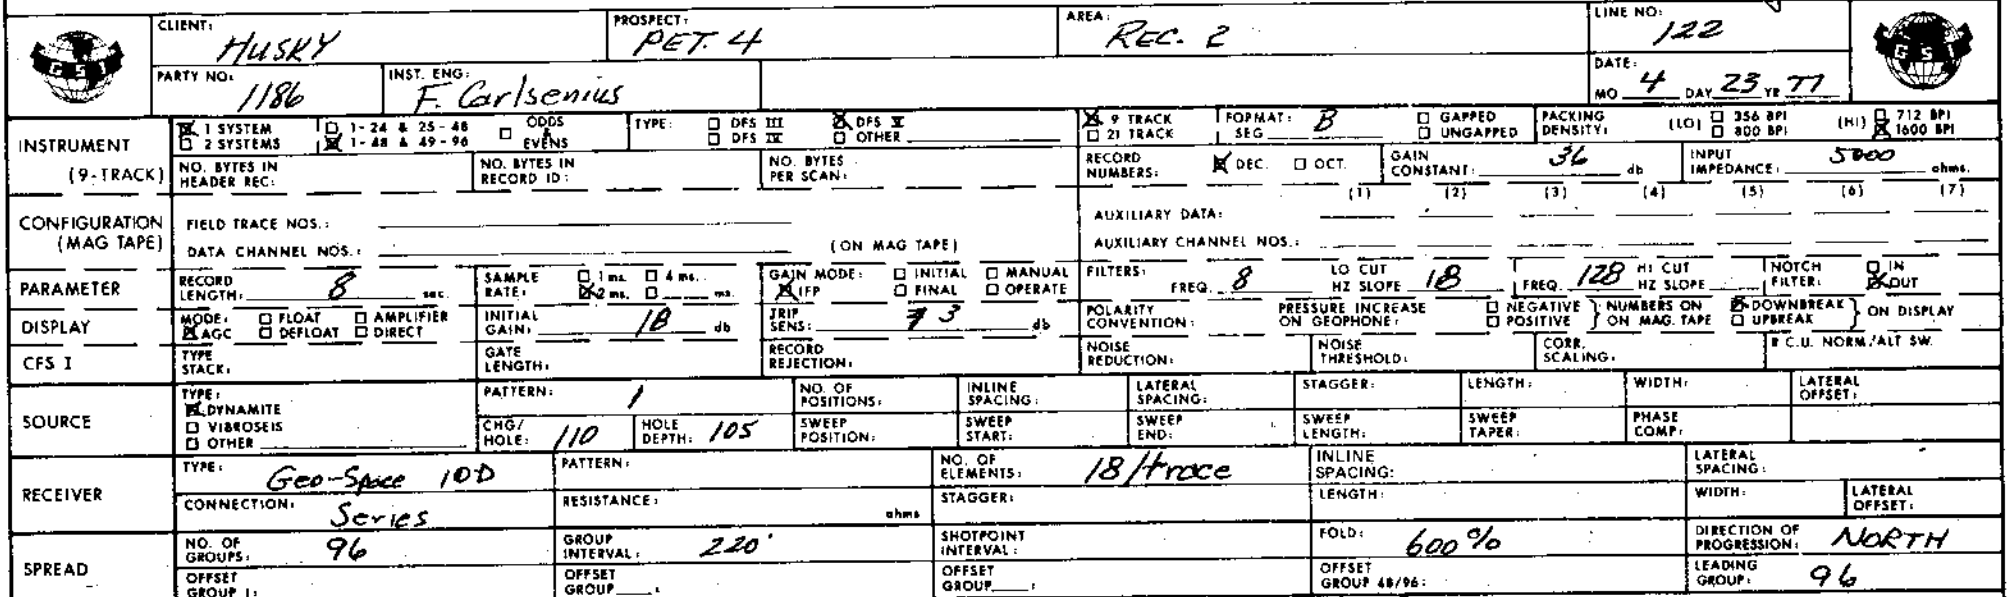 CLIENT: HUSKY PROSPECT: PET. 4 AREA: REC. 2 LINE NO: 122
GSI GSI
PARTY NO: 1186 INST. ENG: F. Carlsenius DATE: MO 4 DAY 23 YR 77
INSTRUMENT (9-TRACK)
☒ 1 SYSTEM ☐ 1-24 & 25-48 ☐ ODDS & EVENS TYPE: ☐ DFS III ☒ DFS V ☒ 9 TRACK FORMAT: SEG B ☐ GAPPED PACKING DENSITY: (LO) ☐ 356 BPI (HI) ☐ 712 BPI
☐ 2 SYSTEMS ☒ 1-48 & 49-96 ☐ DFS IV ☐ OTHER ☐ 21 TRACK ☐ UNGAPPED ☐ 800 BPI ☒ 1600 BPI
NO. BYTES IN HEADER REC: NO. BYTES IN RECORD ID: NO. BYTES PER SCAN: RECORD NUMBERS: ☒ DEC. ☐ OCT. GAIN CONSTANT: 36 db INPUT IMPEDANCE: 5000 ohms.
CONFIGURATION (MAG TAPE)
(1) (2) (3) (4) (5) (6) (7)
FIELD TRACE NOS.: AUXILIARY DATA:
DATA CHANNEL NOS.: (ON MAG TAPE) AUXILIARY CHANNEL NOS.:
PARAMETER
RECORD LENGTH: 8 sec. SAMPLE RATE: ☐ 1 ms. ☐ 4 ms. ☒ 2 ms. ☐ ms. GAIN MODE: ☐ INITIAL ☐ MANUAL ☒ IFP ☐ FINAL ☐ OPERATE FILTERS: FREQ. 8 LO CUT HZ SLOPE 18 FREQ. 128 HI CUT HZ SLOPE NOTCH FILTER: ☐ IN ☒ OUT
DISPLAY
MODE: ☐ FLOAT ☐ AMPLIFIER ☒ AGC ☐ DEFLOAT ☐ DIRECT INITIAL GAIN: 18 db TRIP SENS: 3 db POLARITY CONVENTION: PRESSURE INCREASE ON GEOPHONE: ☐ NEGATIVE ☐ POSITIVE } NUMBERS ON MAG. TAPE ☒ DOWNBREAK ☐ UPBREAK } ON DISPLAY
CFS I
TYPE STACK: GATE LENGTH: RECORD REJECTION: NOISE REDUCTION: NOISE THRESHOLD: CORR. SCALING: R.C.U. NORM./ALT SW.
SOURCE
TYPE: ☒ DYNAMITE ☐ VIBROSEIS ☐ OTHER PATTERN: 1 NO. OF POSITIONS: INLINE SPACING: LATERAL SPACING: STAGGER: LENGTH: WIDTH: LATERAL OFFSET:
CHG/HOLE: 110 HOLE DEPTH: 105 SWEEP POSITION: SWEEP START: SWEEP END: SWEEP LENGTH: SWEEP TAPER: PHASE COMP:
RECEIVER
TYPE: Geo-Space 10D PATTERN: NO. OF ELEMENTS: 18/trace INLINE SPACING: LATERAL SPACING:
CONNECTION: Series RESISTANCE: ohms STAGGER: LENGTH: WIDTH: LATERAL OFFSET:
SPREAD
NO. OF GROUPS: 96 GROUP INTERVAL: 220' SHOTPOINT INTERVAL: FOLD: 600% DIRECTION OF PROGRESSION: NORTH
OFFSET GROUP 1: OFFSET GROUP : OFFSET GROUP : OFFSET GROUP 48/96: LEADING GROUP: 96